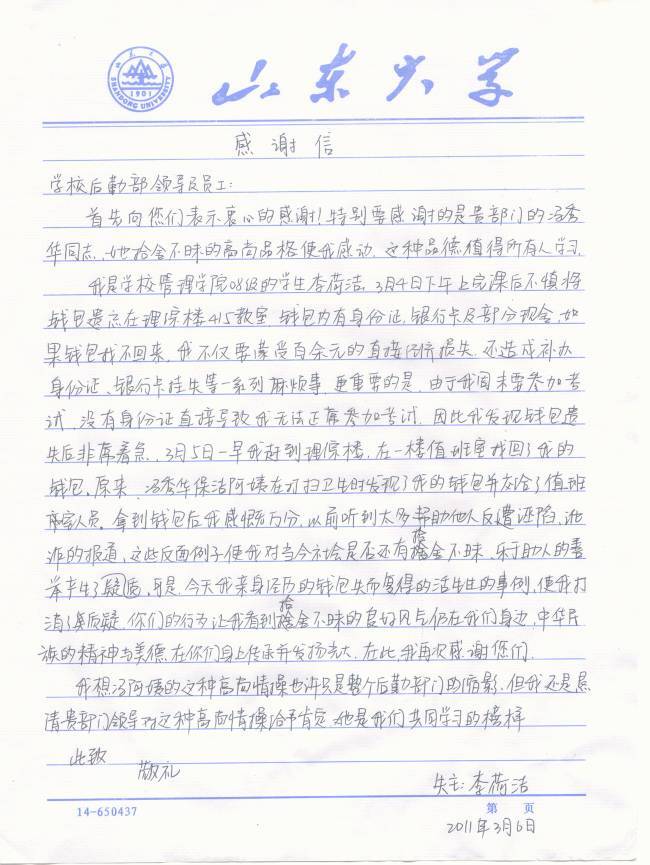 山东大学
SHANDONG UNIVERSITY
1901
感谢信
学校后勤部领导及员工:
首先向您们表示衷心的感谢!特别要感谢的是贵部门的冯秀
华同志,她拾金不昧的高尚品格使我感动,这种品德值得所有人学习.
我是学校管理学院08级的学生李荷洁,3月4日下午上完课后不慎将
钱包遗忘在理综楼415教室,钱包内有身份证,银行卡及部分现金,如
果钱包找不回来,我不仅要遭受百余元的直接经济损失,还造成补办
身份证、银行卡挂失等一系列麻烦事,更重要的是,由于我周末要参加考
试,没有身份证直接导致我无法正常参加考试,因此我发现钱包遗
失后非常着急,3月5日一早我赶到理综楼,在一楼值班室找回了我的
钱包,原来,冯秀华保洁阿姨在打扫卫生时发现了我的钱包并交给了值班
室人员.拿到钱包后我感慨万分,以前听到太多帮助他人反遭诬陷,讹
诈的报道,这些反面例子使我对当今社会是否还有拾金不昧、乐于助人的善
举产生了疑质,可是,今天我亲身经历的钱包失而复得的活生生的事例,使我打
消了质疑,你们的行为让我看到拾金不昧的良好风气仍在我们身边,中华民
族的精神与美德在你们身上传承并发扬光大,在此,我再次感谢您们.
我想冯阿姨的这种高尚情操也许只是整个后勤部门的缩影,但我还是恳
请贵部门领导对这种高尚情操给予肯定,她是我们共同学习的榜样
此致
敬礼
失主:李荷洁
14-650437 第 页
2011年3月6日